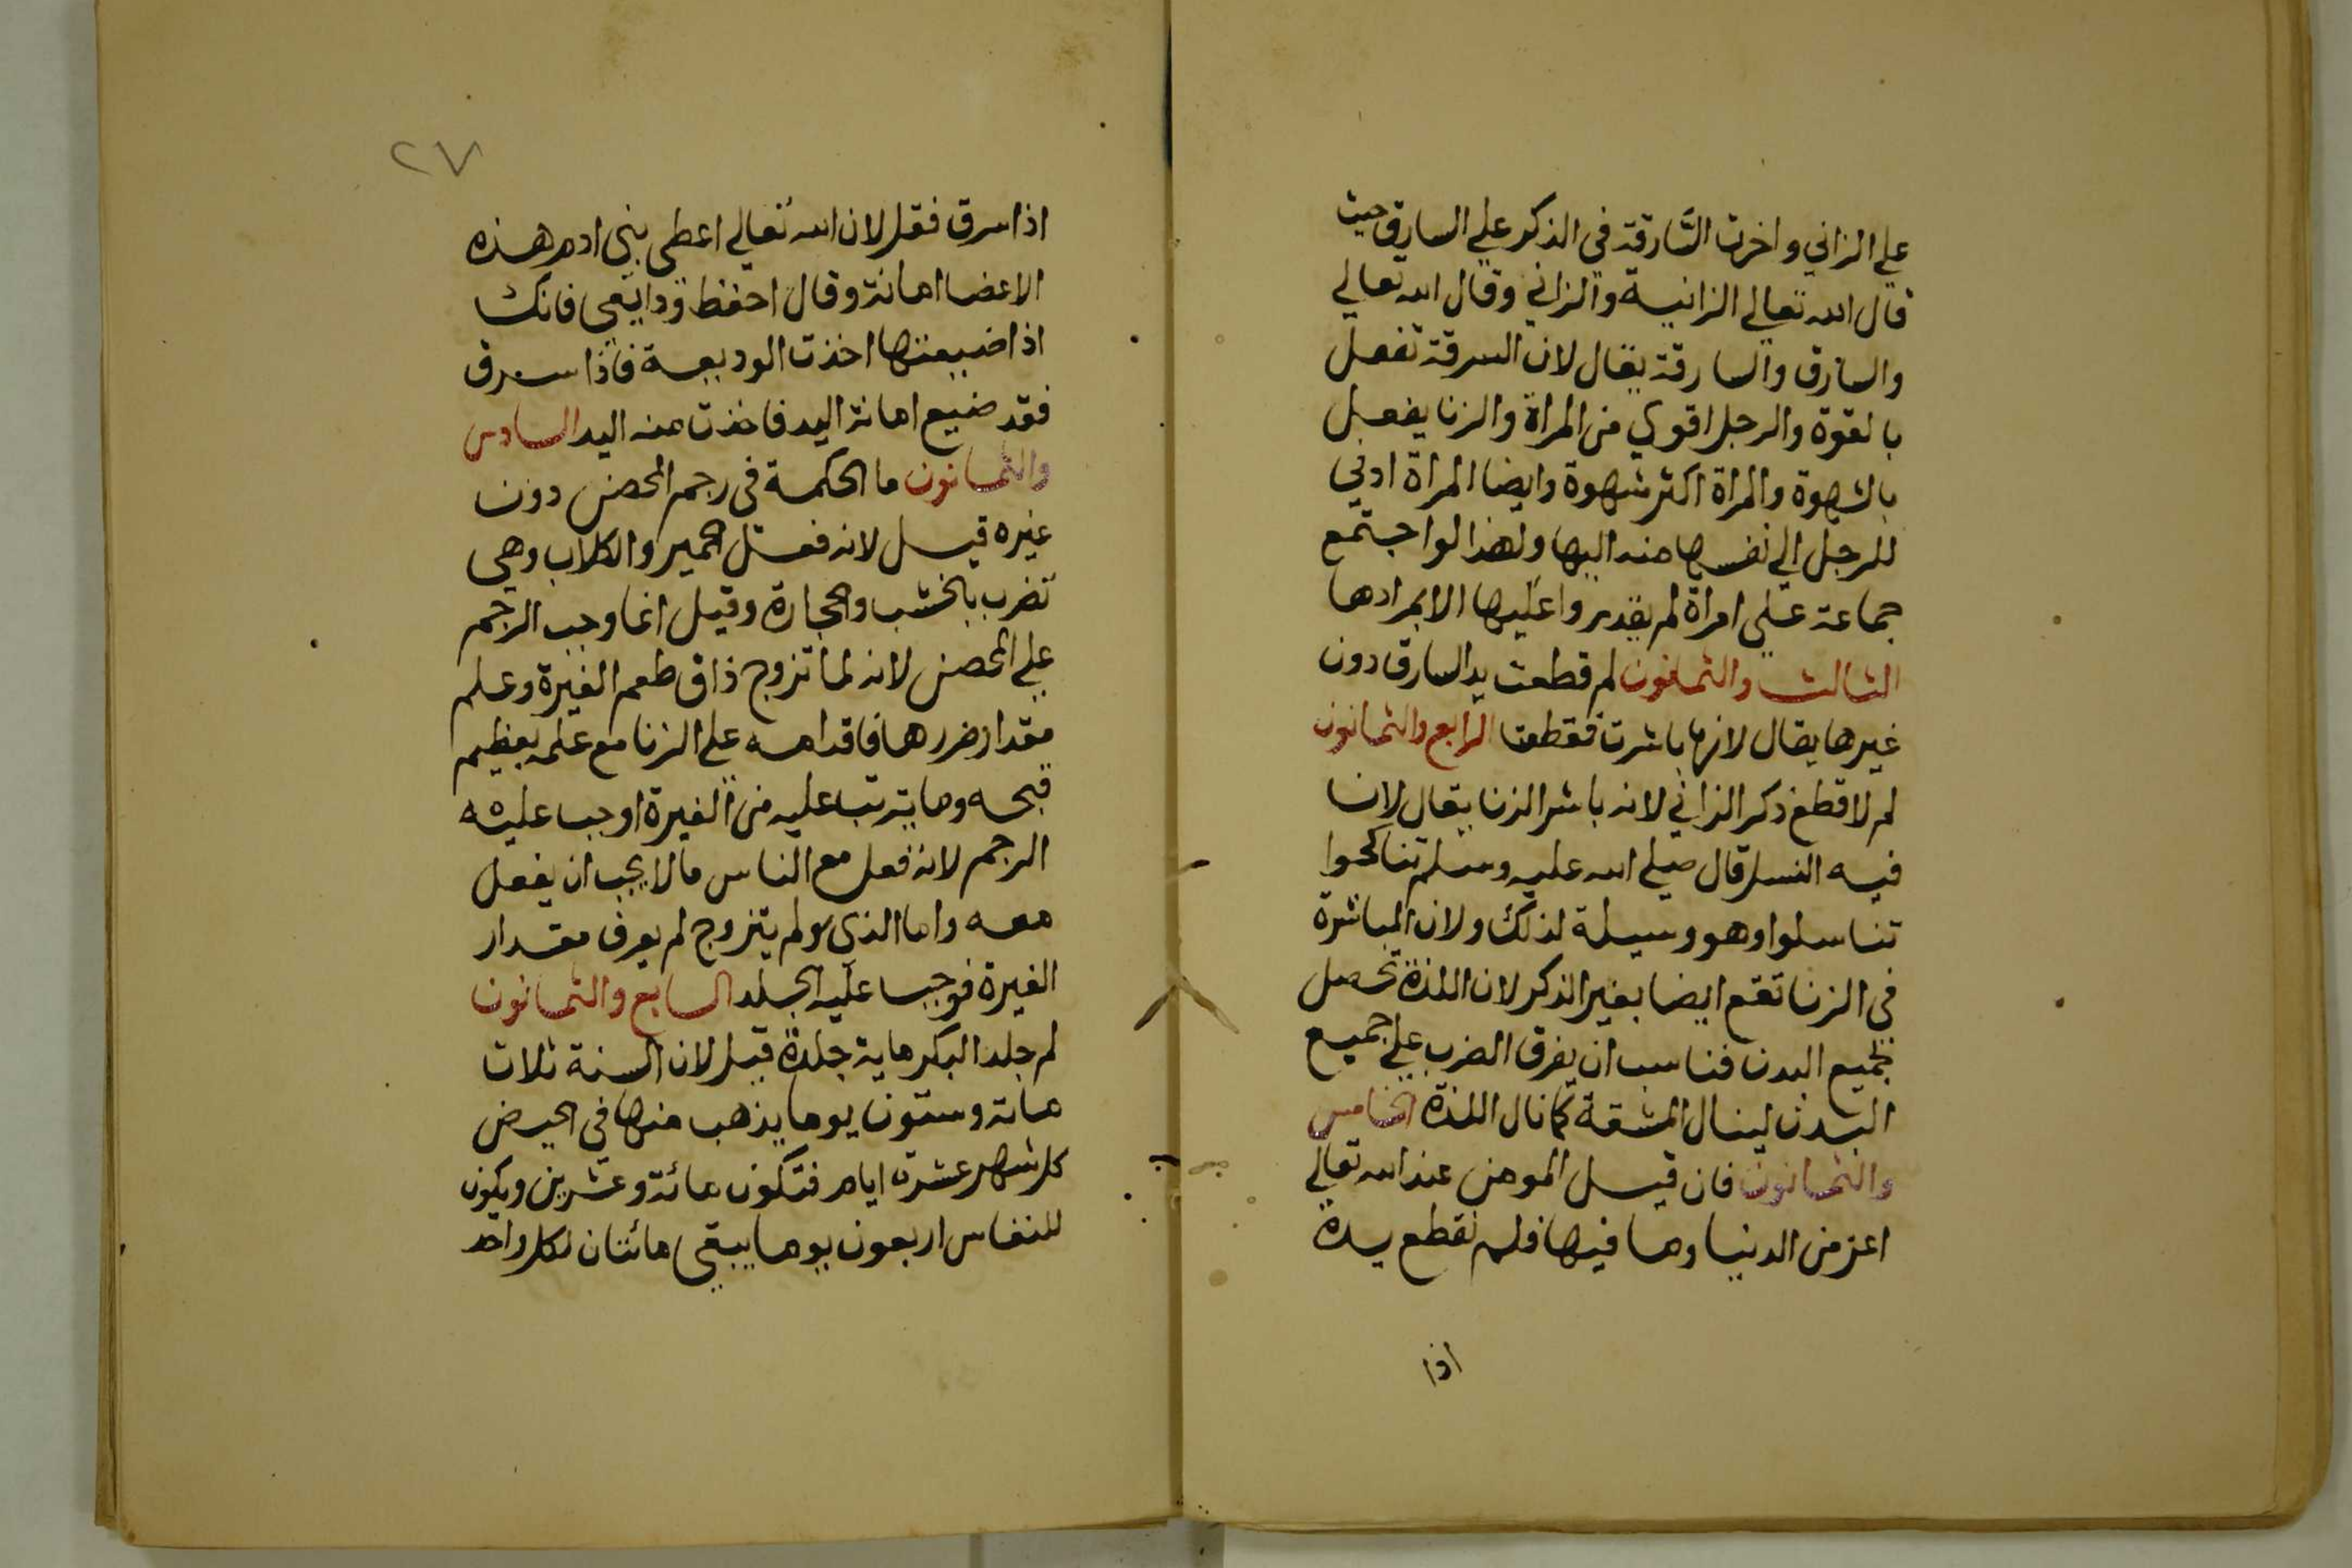 علي الزاني واخرت السَّارقة في الذكر علي السارق حيث
قال الله تعالي الزانية والزاني وقال الله تعالي
والسارق والسارقة يقال لان السرقة تفعل
بالقوة والرجل اقوي من المراة والزنا يفعل
بالشهوة والمراة اكثر شهوة وايضا المراة ادني
للرجل الي نفسها منه اليها ولهذا لو اجتمع
جماعة علي امراة لم يقدروا عليها الا بمرادها
الثالث والثمانون لم قطعت يد السارق دون
غيرها يقال لانها باشرت فقطعت الرابع والثمانون
لم لا قطع ذكر الزاني لانه باشر الزنا يقال لان
فيه النسل قال صلي الله عليه وسلم تناكحوا
تناسلوا وهو وسيلة لذلك ولان المباشرة
في الزنا تقع ايضا بغير الذكر لان اللذة تحصل
بجميع البدن فناسب ان يفرق الضرب علي جميع
البدن لينال المشقة كما نال اللذة الخامس
والثمانون فان قيل المومن عند الله تعالي
اعز من الدنيا وما فيها فلم تقطع يده
اذا
٢٧
اذا سرق فقل لان الله تعالي اعطي بني ادم هذه
الاعضا امانة وقال احفظ ودايعي فانك
اذا ضيعتها اخذت الوديعة فاذا سرق
فقد ضيع امانة اليد فاخذت منه اليد السادس
والثمانون ما الحكمة في رجم المحصن دون
غيره قيل لانه فعل الحمير والكلاب وهي
تضرب بالخشب والحجارة وقيل انما وجب الرجم
علي المحصن لانه لما تزوج ذاق طعم الغيرة وعلم
مقدار ضررها فاقدامه علي الزنا مع علمه بعظيم
قبحه وما يترتب عليه من الغيرة اوجب عليه
الرجم لانه فعل مع الناس ما لا يحب ان يفعل
معه واما الذي لم يتزوج لم يعرف مقدار
الغيرة فوجب عليه الجلد السابع والثمانون
لم جلد البكر ماية جلدة قيل لان السنة ثلاث
مائة وستون يوما يذهب منها في الحيض
كل شهر عشرة ايام فتكون مائة وعشرين ويكون
للنفاس اربعون يوما يبقي مائتان لكل واحد